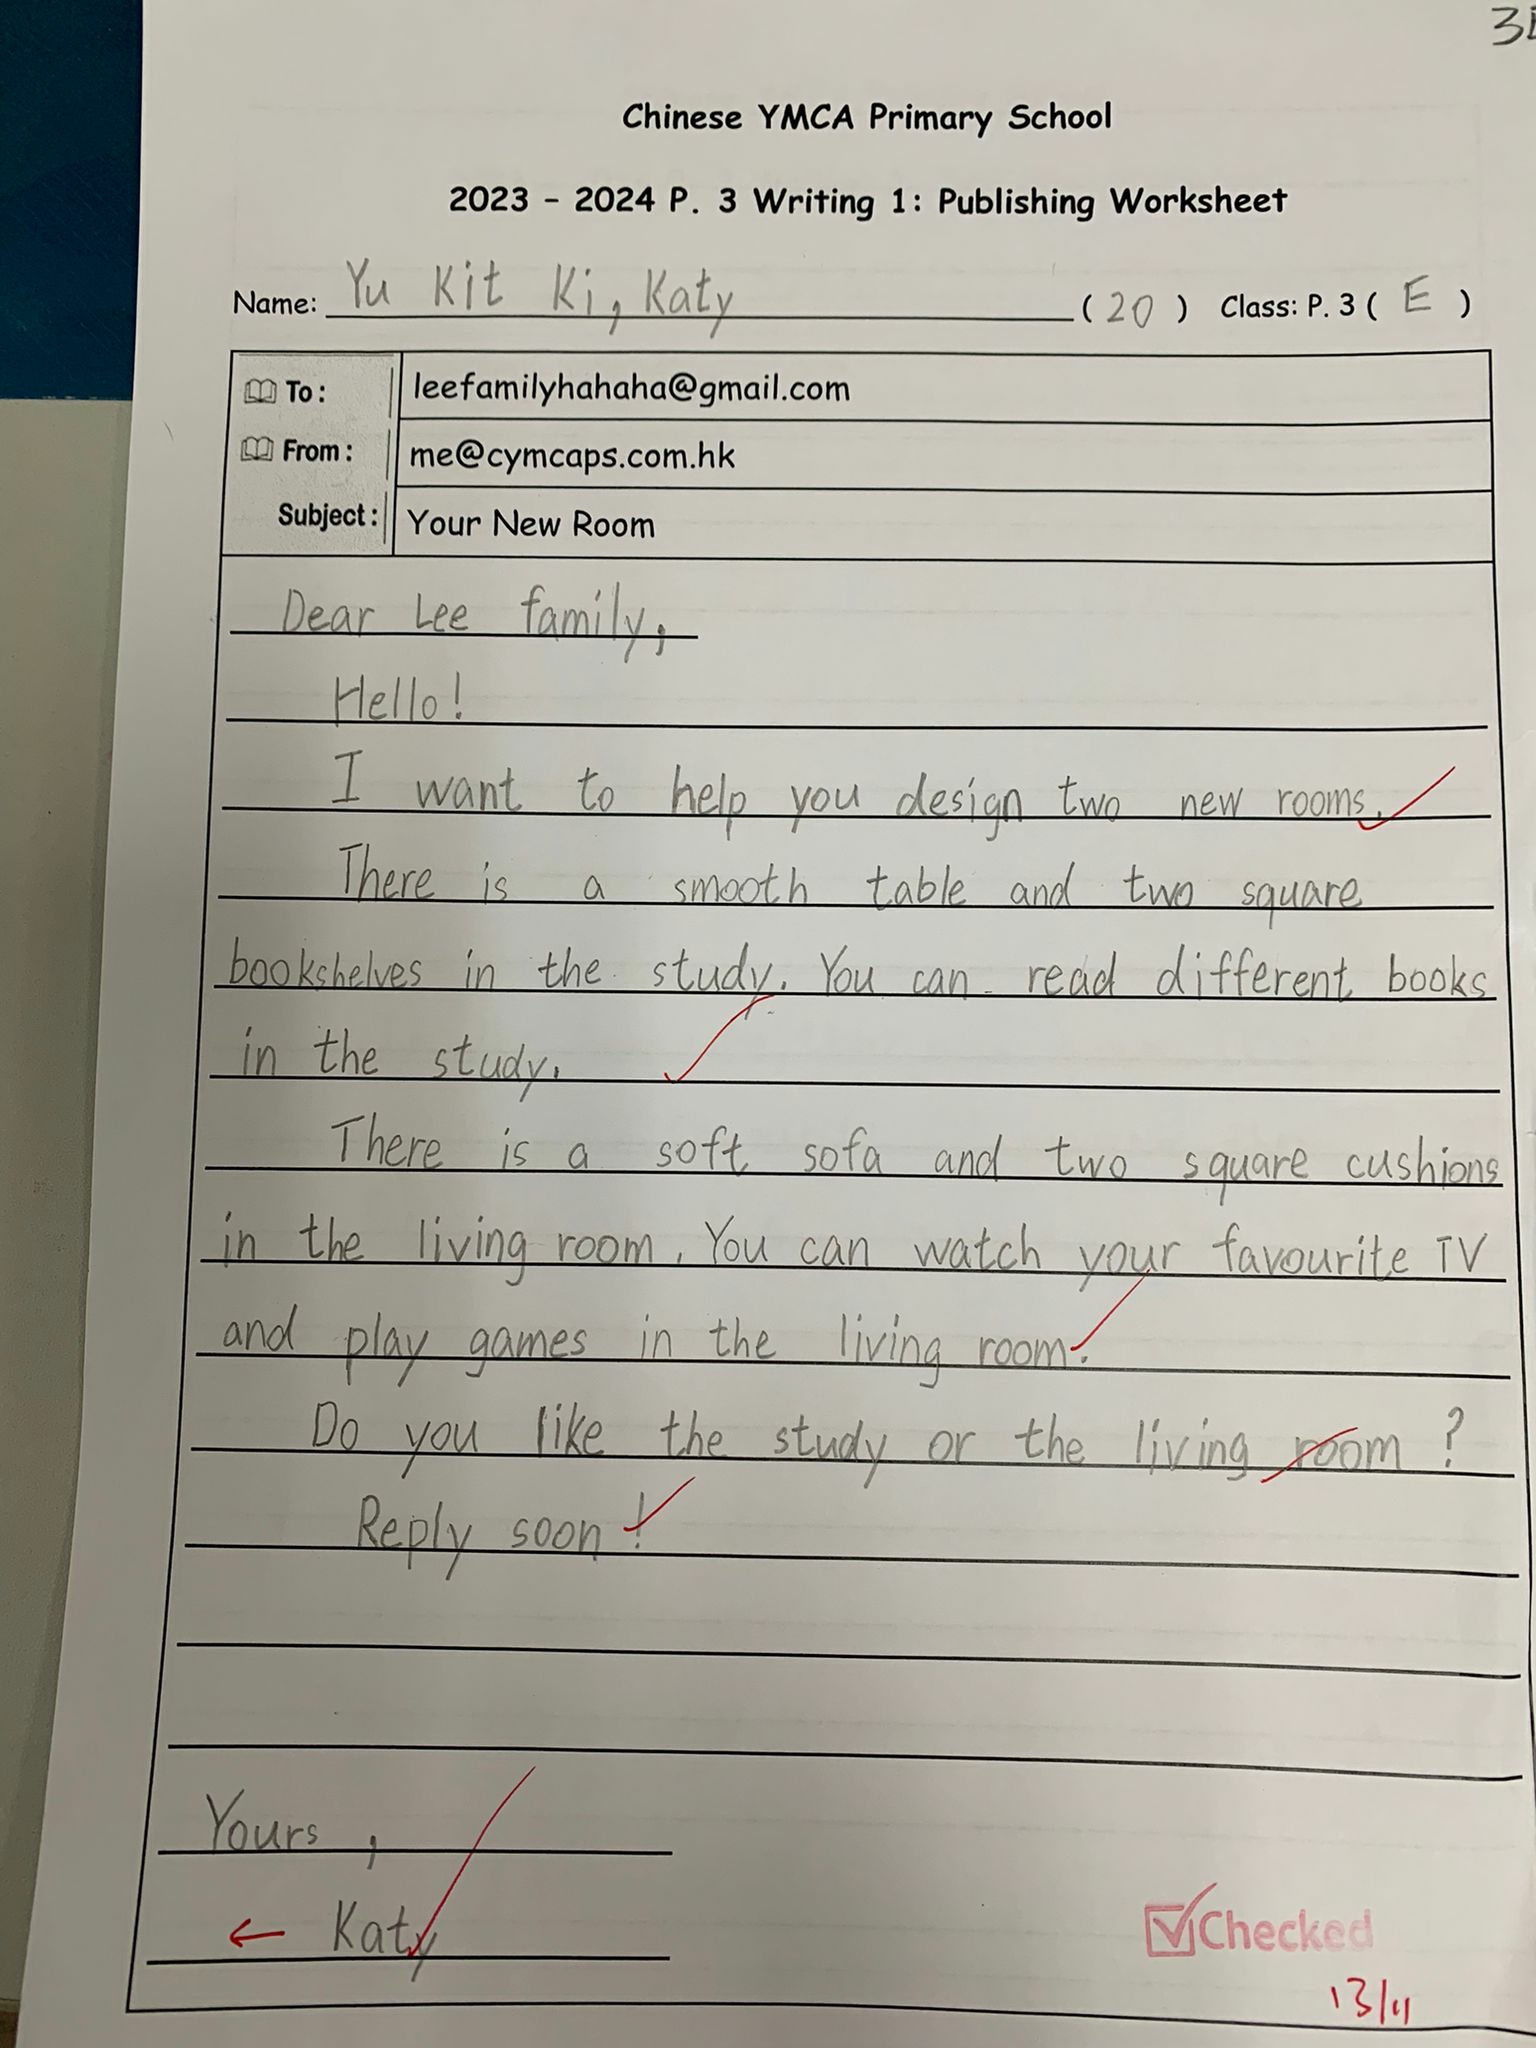 Chinese YMCA Primary School
2023 - 2024 P. 3 Writing 1: Publishing Worksheet
Name: Yu Kit Ki, Katy (20) Class: P. 3 ( E )
To: leefamilyhahaha@gmail.com
From: me@cymcaps.com.hk
Subject: Your New Room
Dear Lee family,
Hello!
I want to help you design two new rooms.
There is a smooth table and two square
bookshelves in the study. You can read different books
in the study.
There is a soft sofa and two square cushions
in the living room. You can watch your favourite TV
and play games in the living room.
Do you like the study or the living room?
Reply soon!
Yours,
← Katy
Checked
13/11